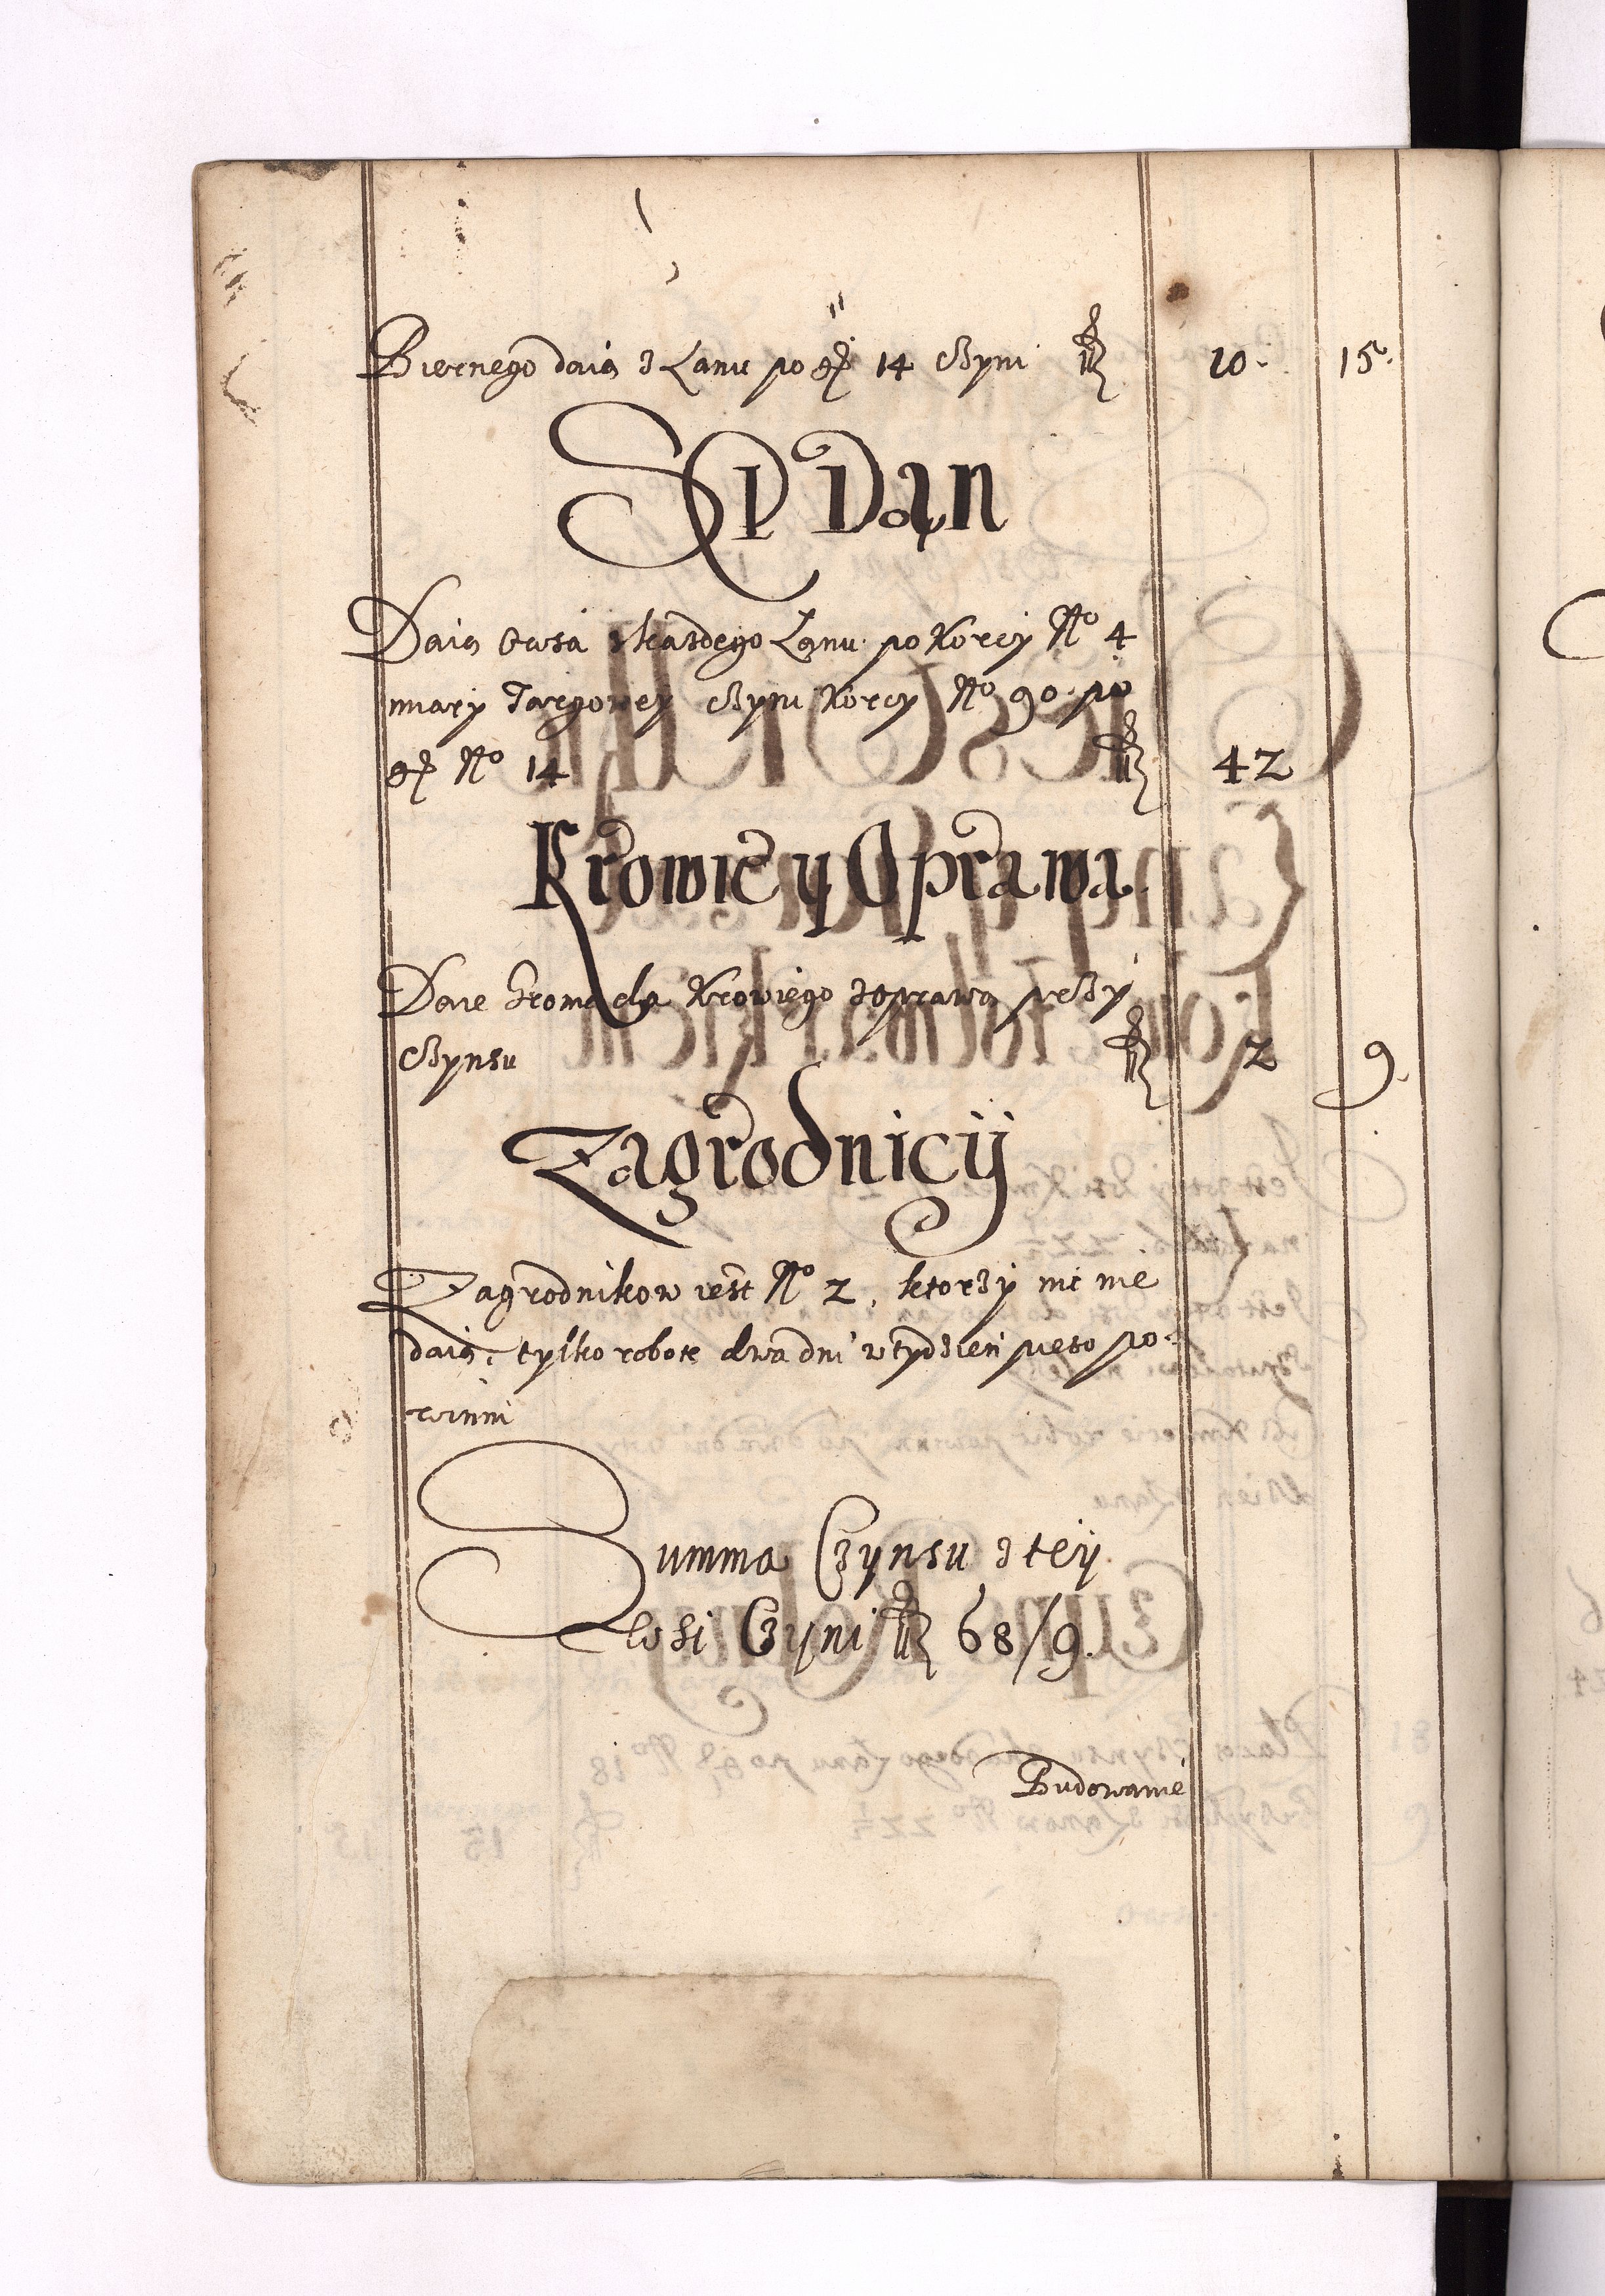 Biernego daią z Lanu po gr 14 czyni fl 10. 15.
Sp Dąn
Daią Owsa zkazdego Lanu po Korcy No 4
miary Targowey czyni Korcy No 90 po
gr No 14 fl 42
Krowie y Oprawa
Daie Gromada Krowiego zoprawą przÿ
czynsu fl 2 9.
Zagrodnicÿ
Zagrodnikow iest No 2, ktorzÿ nic nie
daią, tylko robote dwa dni wtydzien pieso po=
winni
Summa Czynsu z teÿ
Wsi Czyni fl 68/9.
Budowanie